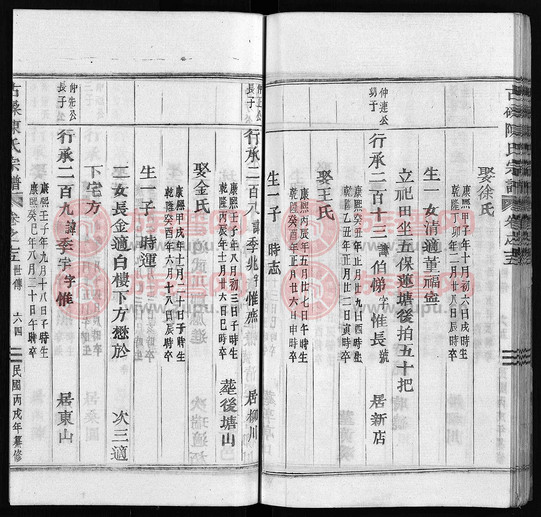 娶徐氏
康熙甲子年十月初六日戌時生
乾隆丁卯年二月廿八日辰時卒
生一女清適董福盛
立祀田坐五保蓮塘後拍五十把
仲連公
行承二百十三 諱伯悌 字惟長 號
居新店
康熙癸丑年正月廿九日酉時生
乾隆乙丑年正月廿二日寅時卒
娶王氏
康熙丙辰年五月廿七日
乾隆癸酉年正月廿六日申時卒
生一子 時志
長子
行承二百八 諱季兆 字惟燕
居柳川
康熙壬子年八月初三日子時生
乾隆丙辰年八月廿六日巳時卒
塟後塘山
娶金氏
康熙甲戌年十二月二十日子時生
乾隆癸酉年六月十八日辰時卒
生一子 時運
二女長金適白樓下方懋於
次三適
下宅方
仲連公
長子
行承二百九 諱季 字惟
居東山
康熙壬子年九月十八日子時生
康熙癸巳年八月二十日午時卒
陳氏宗譜
卷之五
世傳
六四
民國丙戌年纂修